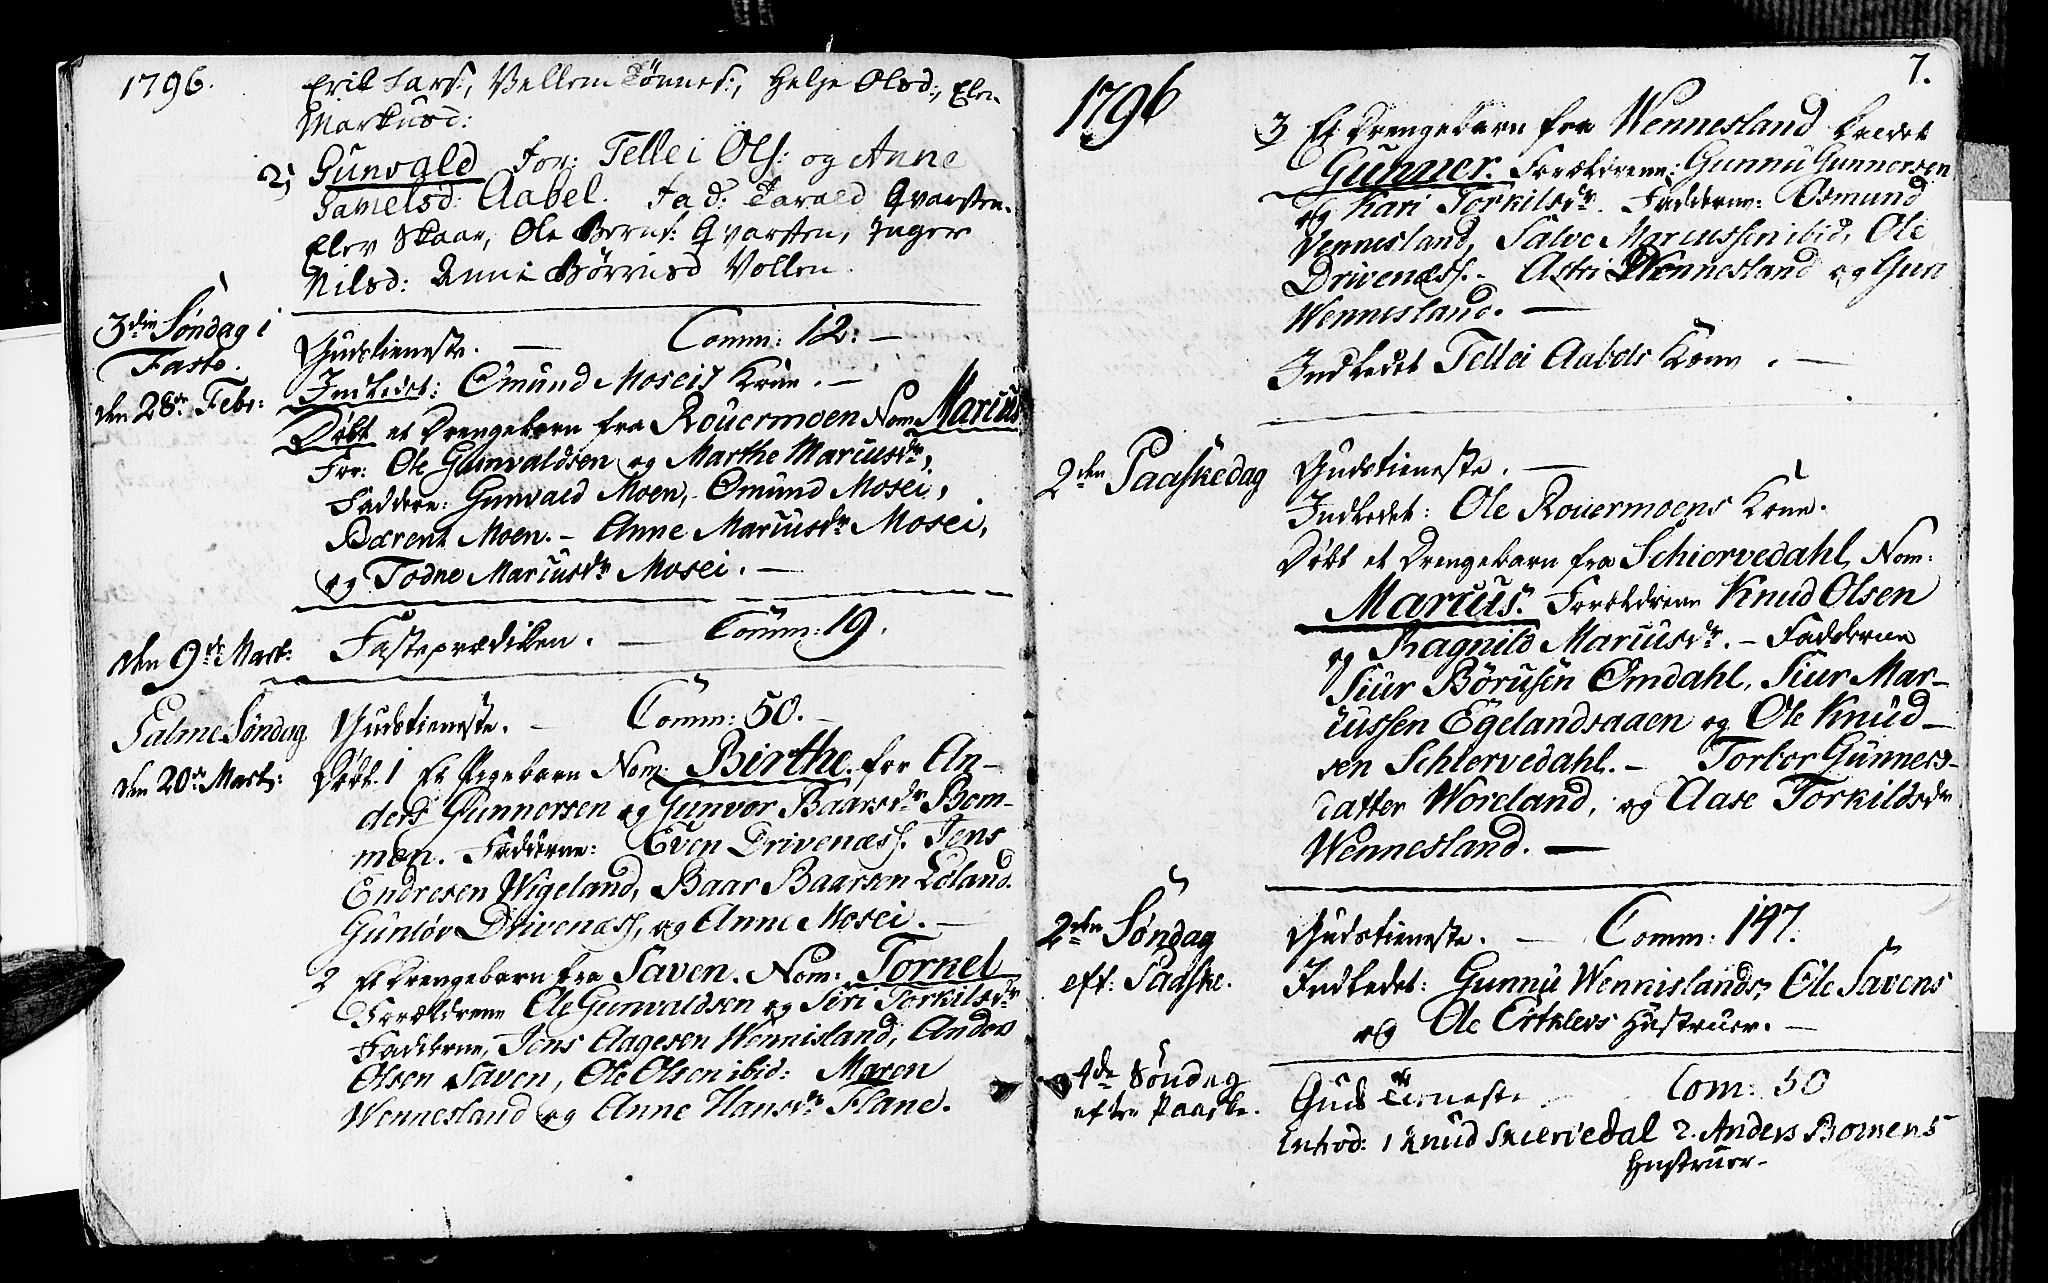 1796.
Erik Lars:, Vellem Tönnes:, Helje Olsd:, Elen
Markusd:
2, Gunvald For: Tellei Ols: og Anne
Samelsd: Aabel. Fad: Tarald Qvarsten.
Elev Skaar, Ole Bernt: Qvarsten, Inger
Nilsd: Anne Börriusd Vollen.
3die Søndag i
Faste.
den 28de Febr:
Gudstieneste. — Comm: 12: —
Indledet: Omund Moseis Kone. —
Døbt et Drengebarn fra Rouermoen Nom: Marcus
For: Ole Gunvaldsen og Marthe Marcusdr,
Faddere: Gunvald Moen, Omund Mosei,
Bærent Moen. – Anne Marcusdr Mosei,
og Todne Marcusdr Mosei. —
den 9de Mart:
Fasteprædiken. — Comm: 19.
Palme Søndag
den 20de Mart:
Gudstieneste. – Comm: 50. –
Døbt. 1 Et Pigebarn Nom: Birthe. for An-
ders Gunnersen og Gunvor Baarsdr Bom-
men. Fadderne: Even Drivenæss. Jens
Endresen Wigeland, Baar Baarsen Løland.
Gunlöv Drivenæss, og Anne Mosei. —
2 Et Drengebarn fra Saven. Nom: Torkel
Forældrene Ole Gunvaldsen og Siri Torkilsdr
Fadderne, Jens Aagesen Wennisland, Anders
Olsen Saven, Ole Olsen ibid: Maren
Wennesland og Anne Hansdr Flane.
1796
7.
3 Et Drengebarn fra Wennesland kaldet
Gunner. Forældrene: Gunnu Gunnersen
og Kari Torkilsdr. Fadderne: Osmund
Vennesland, Salve Marcussen ibid, Ole
Drivenæss. – Astri Wennesland og Guri
Wennesland. —
Indledet Tellei Aabels Kone. —
2den Paaskedag
Gudstieneste. —
Indledet: Ole Rouermoens Kone.
Døbt et Drengebarn fra Schiorvedahl, Nom:
Marcus. Forældrene Knud Olsen
og Ragnild Marcusdr. – Fadderne
Siur Börusen Omdahl, Siur Mar-
cussen Egelandsaaen og Ole Knud-
sen Schiorvedahl. – Torbor Gunners-
datter Woreland, og Aase Torkildsdr
Wennesland. —
2den Søndag
eft: Paaske.
Gudstieneste. — Comm: 147.
Indledet: Gunnu Wennislands, Ole Savens
og Ole Ertklevs Hustruer. —
4de Søndag
efter Paaske.
Guds Tieneste Com: 50
Introd: 1 Knud Skiervedal 2. Anders Bomens
Hustruer –